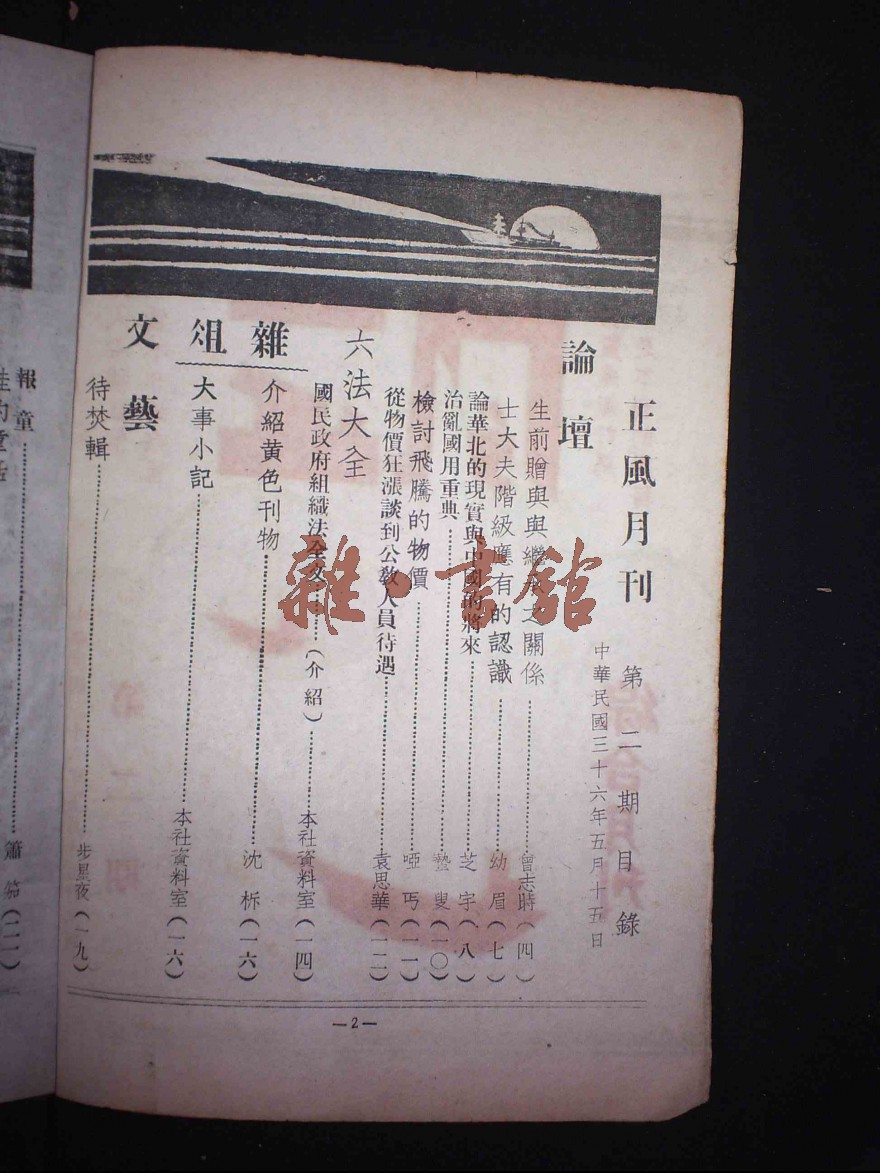 正風月刊 第二期目錄
中華民國三十六年五月十五日
論壇
生前贈與與繼承之關係……曾志時(四)
士大夫階級應有的認識……幼眉(七)
論華北的現實與中國的將來……芝宇(八)
治亂國用重典……蟄叟(一〇)
檢討飛騰的物價……啞丐(一一)
從物價狂漲談到公教人員待遇……袁思華(一二)
六法大全
國民政府組織法全文……(介紹)……本社資料室(一四)
雜俎
介紹黃色刊物……沈柝(一六)
大事小記……本社資料室(一六)
文藝
待焚輯……步星夜(一九)
—2—
報童……簫
雜·書館
綜合月刊
第二期